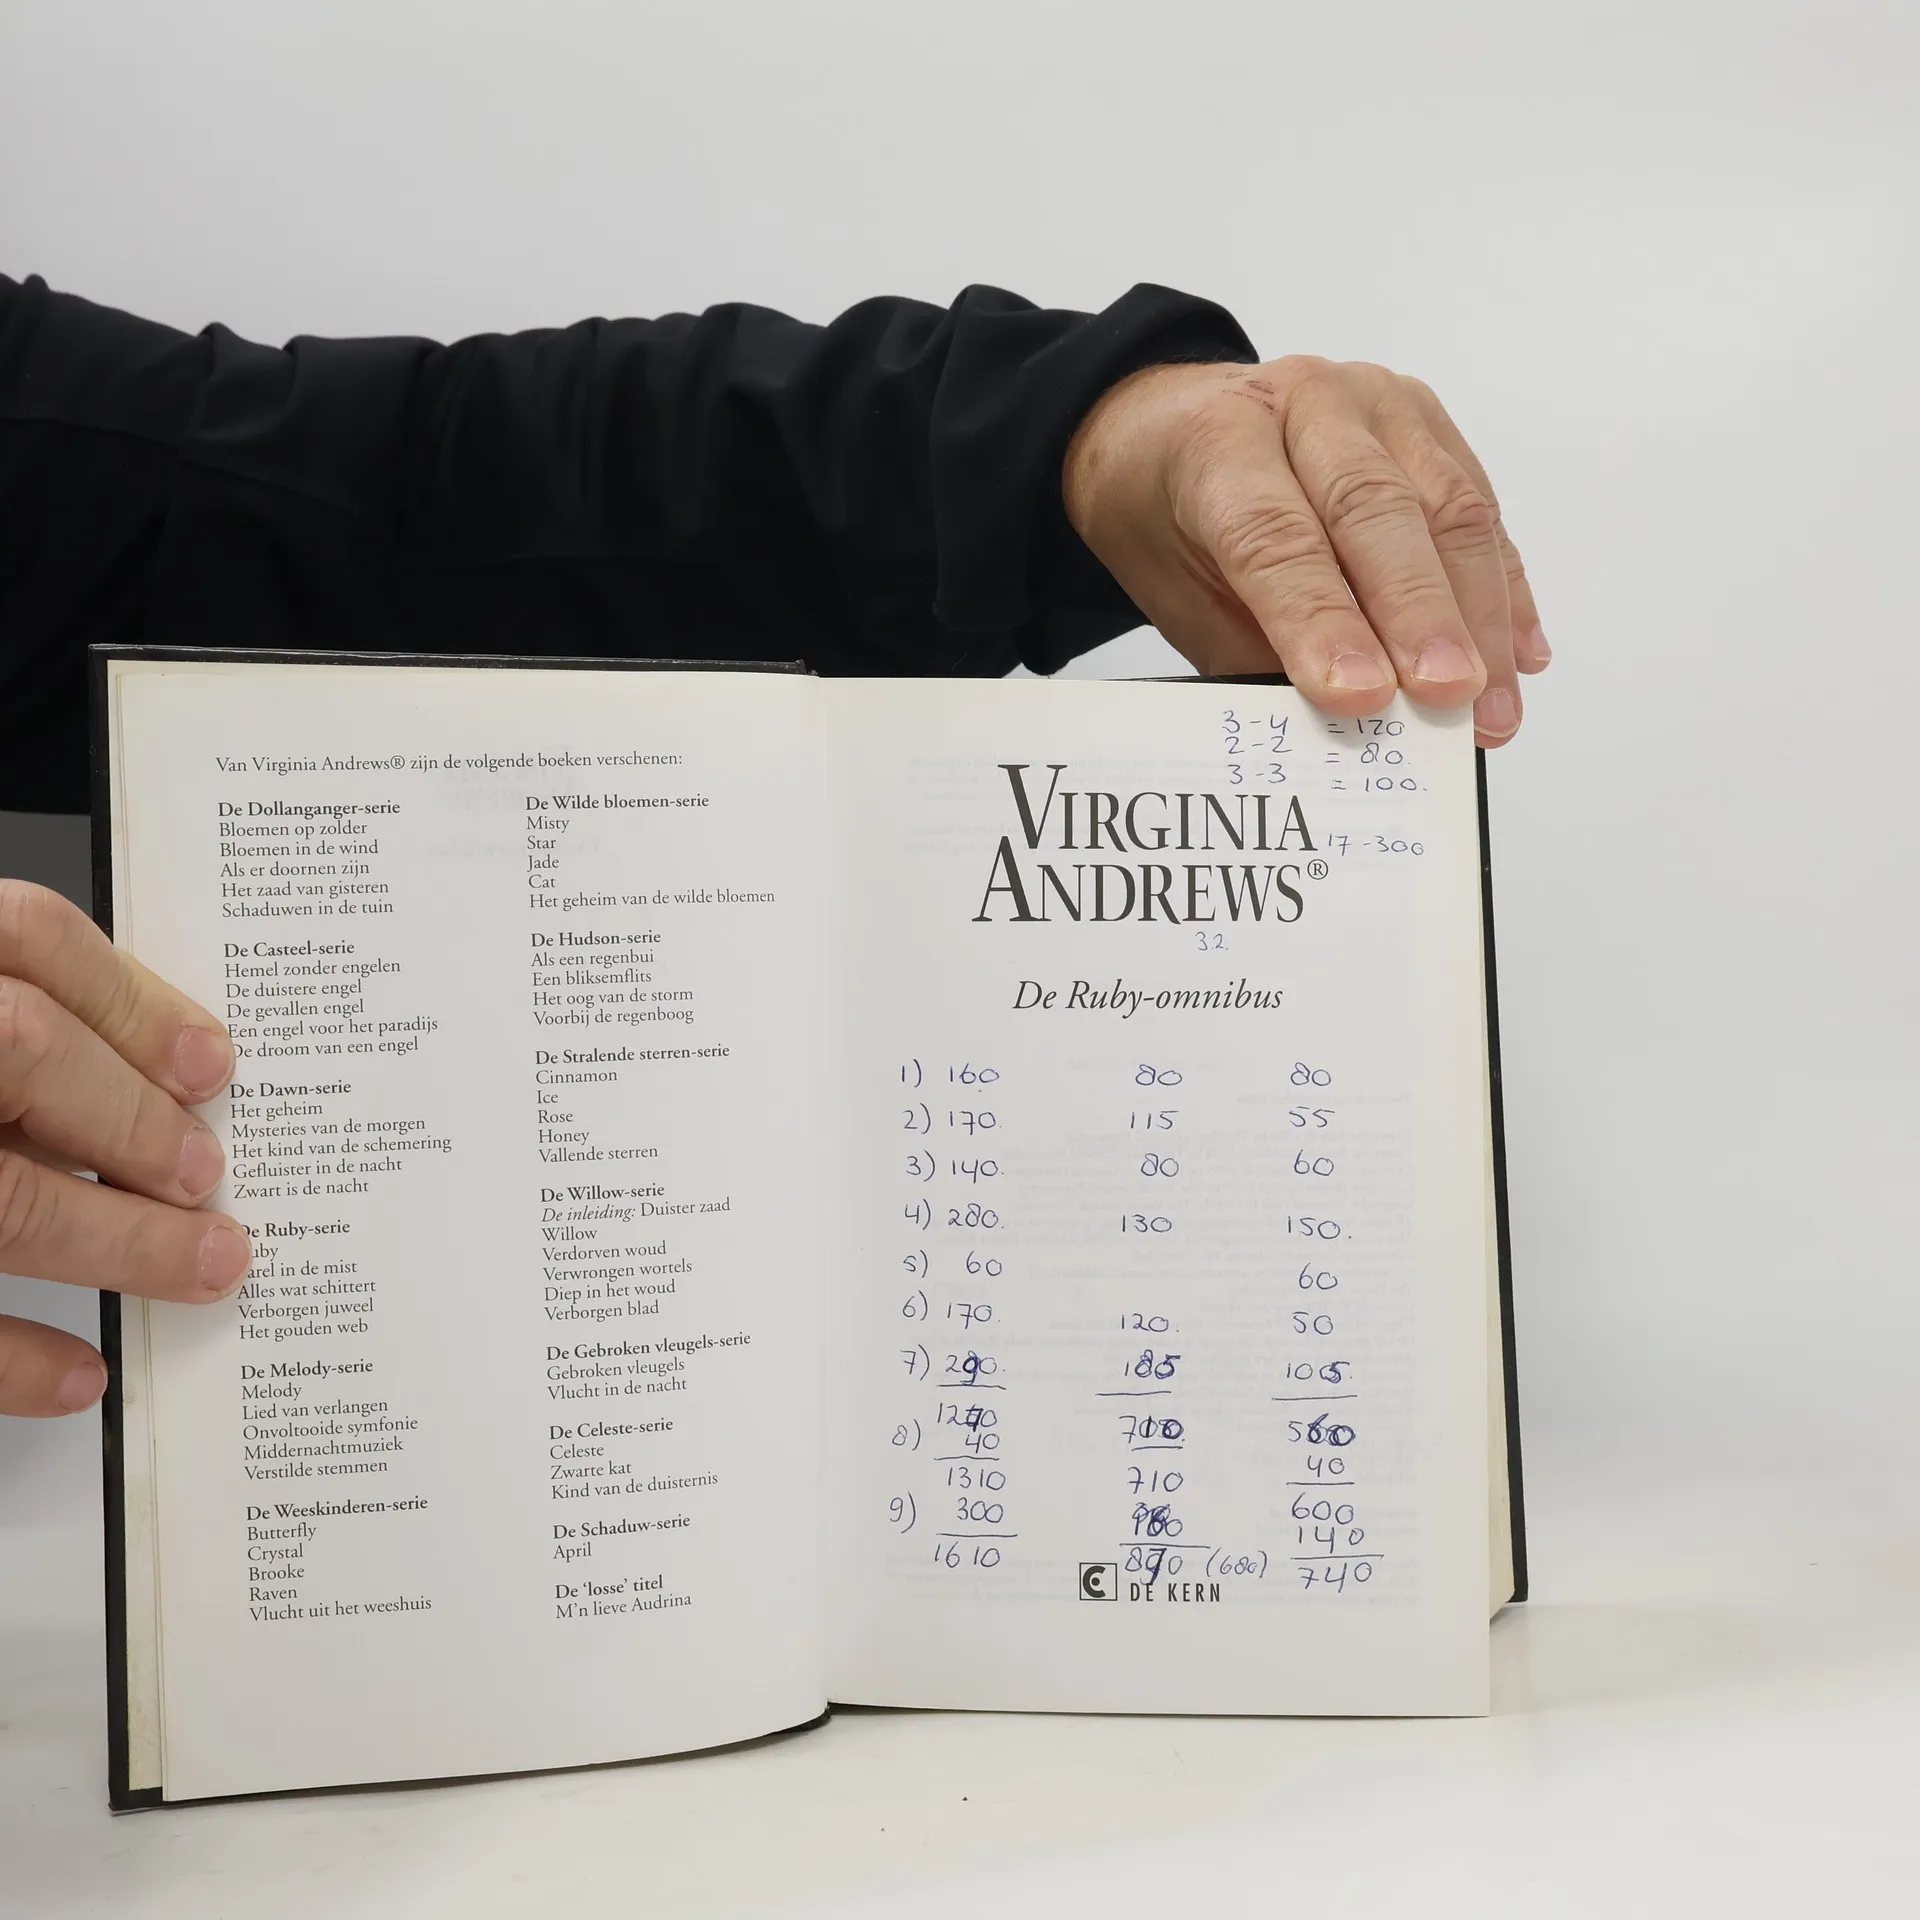 Van Virginia Andrews® zijn de volgende boeken verschenen:
De Dollanganger-serie
Bloemen op zolder
Bloemen in de wind
Als er doornen zijn
Het zaad van gisteren
Schaduwen in de tuin
De Casteel-serie
Hemel zonder engelen
De duistere engel
De gevallen engel
Een engel voor het paradijs
De droom van een engel
De Dawn-serie
Het geheim
Mysteries van de morgen
Het kind van de schemering
Gefluister in de nacht
Zwart is de nacht
De Ruby-serie
uby
arel in de mist
Alles wat schittert
Verborgen juweel
Het gouden web
De Melody-serie
Melody
Lied van verlangen
Onvoltooide symfonie
Middernachtmuziek
Verstilde stemmen
De Weeskinderen-serie
Butterfly
Crystal
Brooke
Raven
Vlucht uit het weeshuis
De Wilde bloemen-serie
Misty
Star
Jade
Cat
Het geheim van de wilde bloemen
De Hudson-serie
Als een regenbui
Een bliksemflits
Het oog van de storm
Voorbij de regenboog
De Stralende sterren-serie
Cinnamon
Ice
Rose
Honey
Vallende sterren
De Willow-serie
De inleiding: Duister zaad
Willow
Verdorven woud
Verwrongen wortels
Diep in het woud
Verborgen blad
De Gebroken vleugels-serie
Gebroken vleugels
Vlucht in de nacht
De Celeste-serie
Celeste
Zwarte kat
Kind van de duisternis
De Schaduw-serie
April
De 'losse' titel
M'n lieve Audrina
3-4 = 120
2-2 = 80.
3-3 = 100.
VIRGINIA
17-300
ANDREWS®
3.2.
De Ruby-omnibus
1) 160 80 80
2) 170. 115 55
3) 140. 80 60
4) 280. 130 150.
5) 60 60
6) 170. 120. 50
7) 290. 185 105.
1270
8) 40 40
1310 710 600
9) 300 140
1610 (680) 740
DE KERN